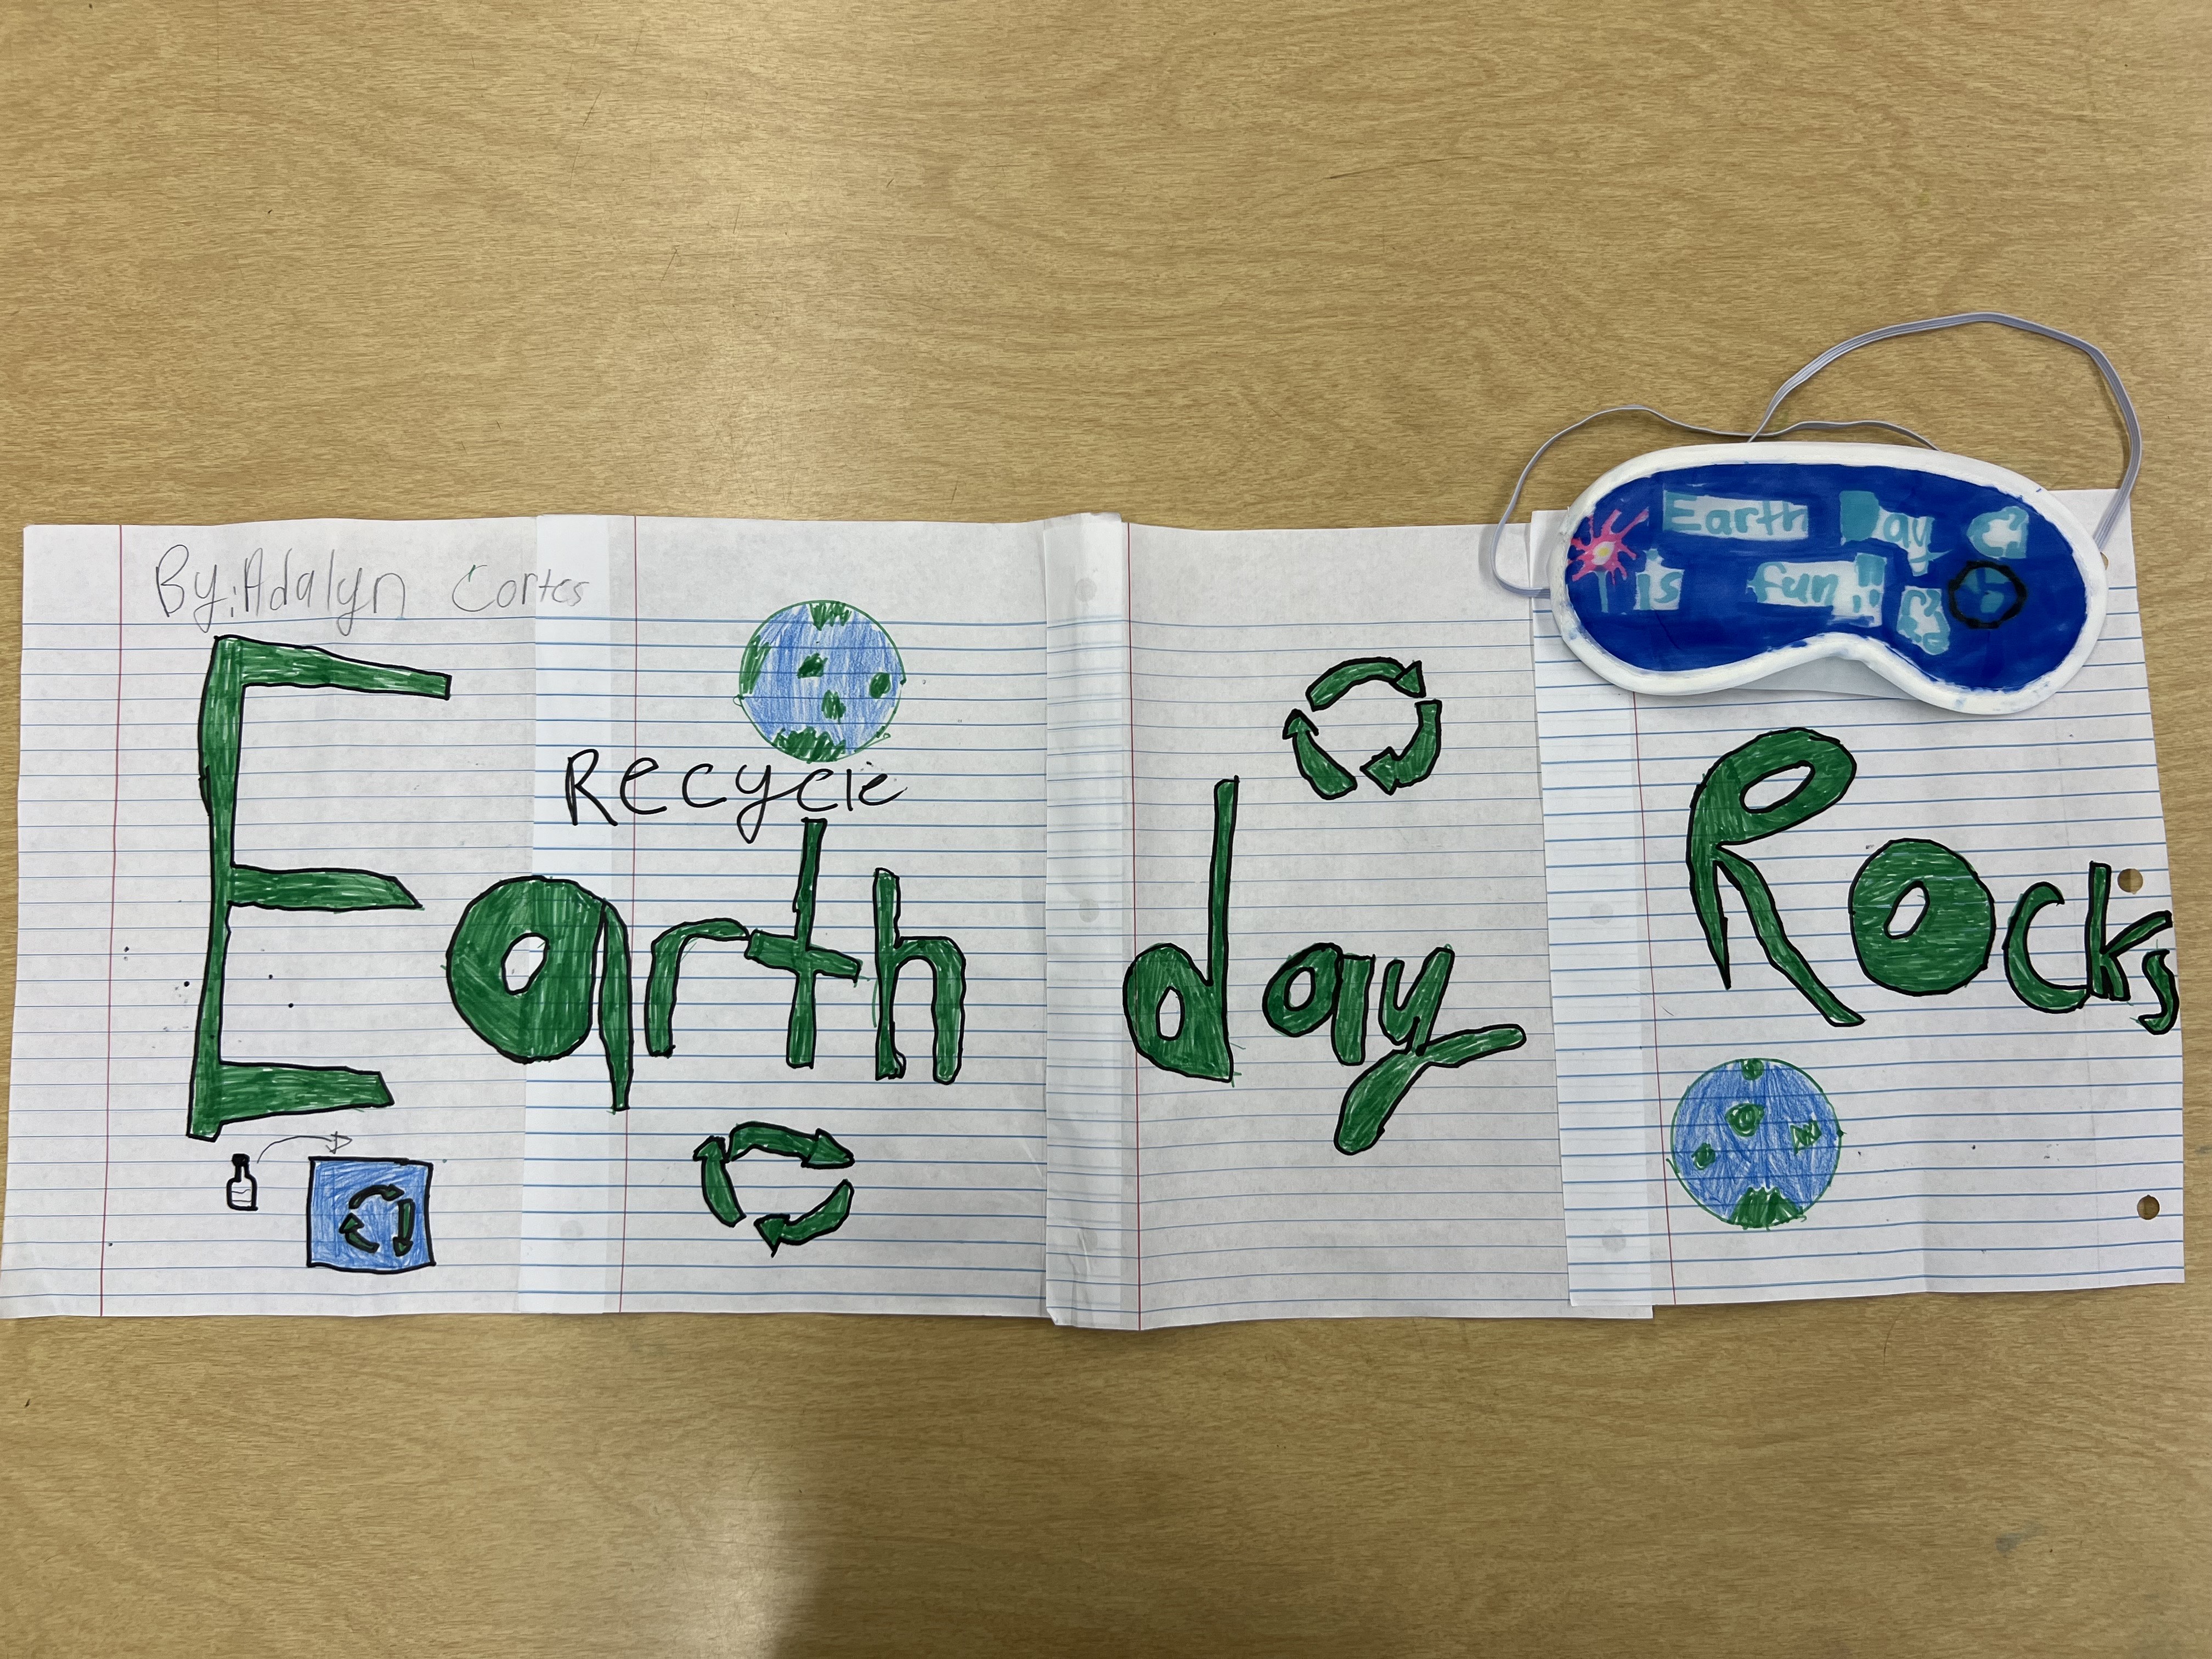 By: Adalyn Cortes
Recycle
Earth day Rocks
Earth Day
is fun!!